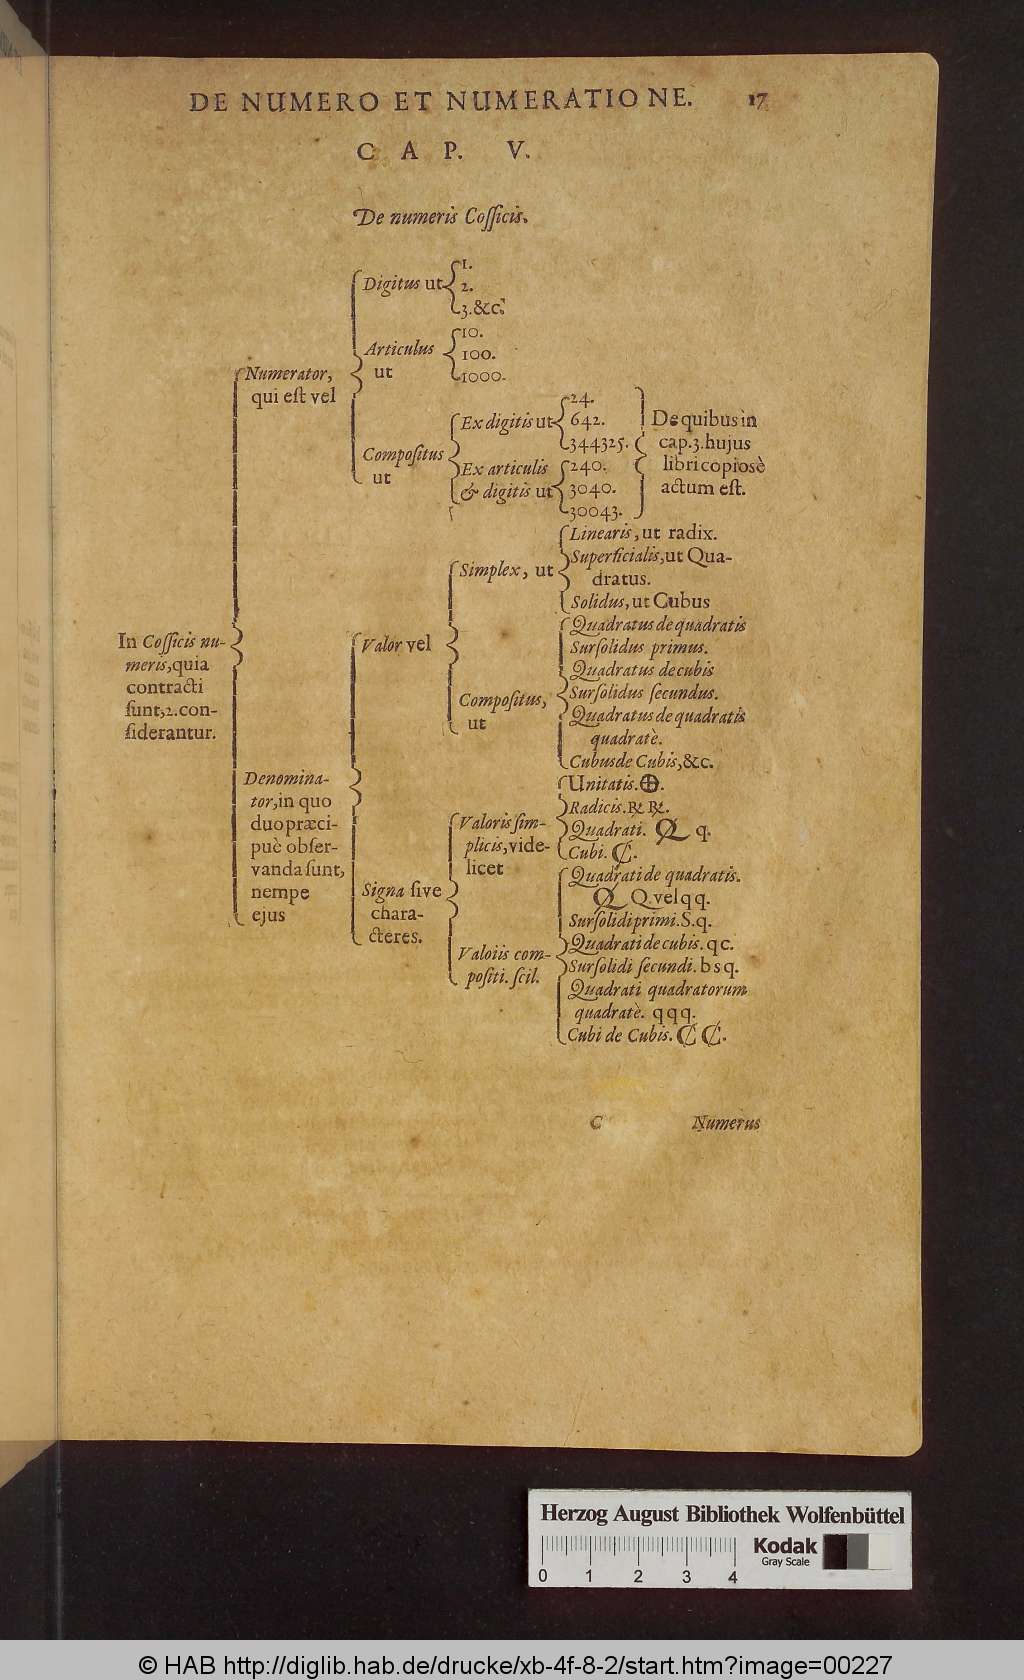 DE NUMERO ET NUMERATIONE. 17
CAP. V.
De numeris Coſſicis.
In Coſſicis nu-
meris, quia
contracti
ſunt, 2. con-
ſiderantur.
Numerator,
qui eſt vel
Digitus ut
1.
2.
3. &c.
Articulus
ut
10.
100.
1000.
Compoſitus
ut
Ex digitis ut
24.
642.
344325.
Ex articulis
& digitis ut
240.
3040.
30043.
De quibus in
cap. 3. hujus
libri copiosè
actum eſt.
Denomina-
tor, in quo
duo præci-
puè obſer-
vanda ſunt,
nempe
ejus
Valor vel
Simplex, ut
Linearis, ut radix.
Superficialis, ut Qua-
dratus.
Solidus, ut Cubus
Compoſitus,
ut
Quadratus de quadratis
Surſolidus primus.
Quadratus de cubis
Surſolidus ſecundus.
Quadratus de quadratis
quadratè.
Cubus de Cubis, &c.
Signa ſive
chara-
cteres.
Valoris ſim-
plicis, vide-
licet
Unitatis. ⊕.
Radicis. ℞ ℞.
Quadrati. Q q.
Cubi. ₵.
Valoiis com-
poſiti. ſcil.
Quadrati de quadratis.
Q Q. vel q q.
Surſolidi primi. S. q.
Quadrati de cubis. q c.
Surſolidi ſecundi. b s q.
Quadrati quadratorum
quadratè. q q q.
Cubi de Cubis. ₵ ₵.
C Numerus
Herzog August Bibliothek Wolfenbüttel
Kodak
Gray Scale
0 1 2 3 4
© HAB http://diglib.hab.de/drucke/xb-4f-8-2/start.htm?image=00227